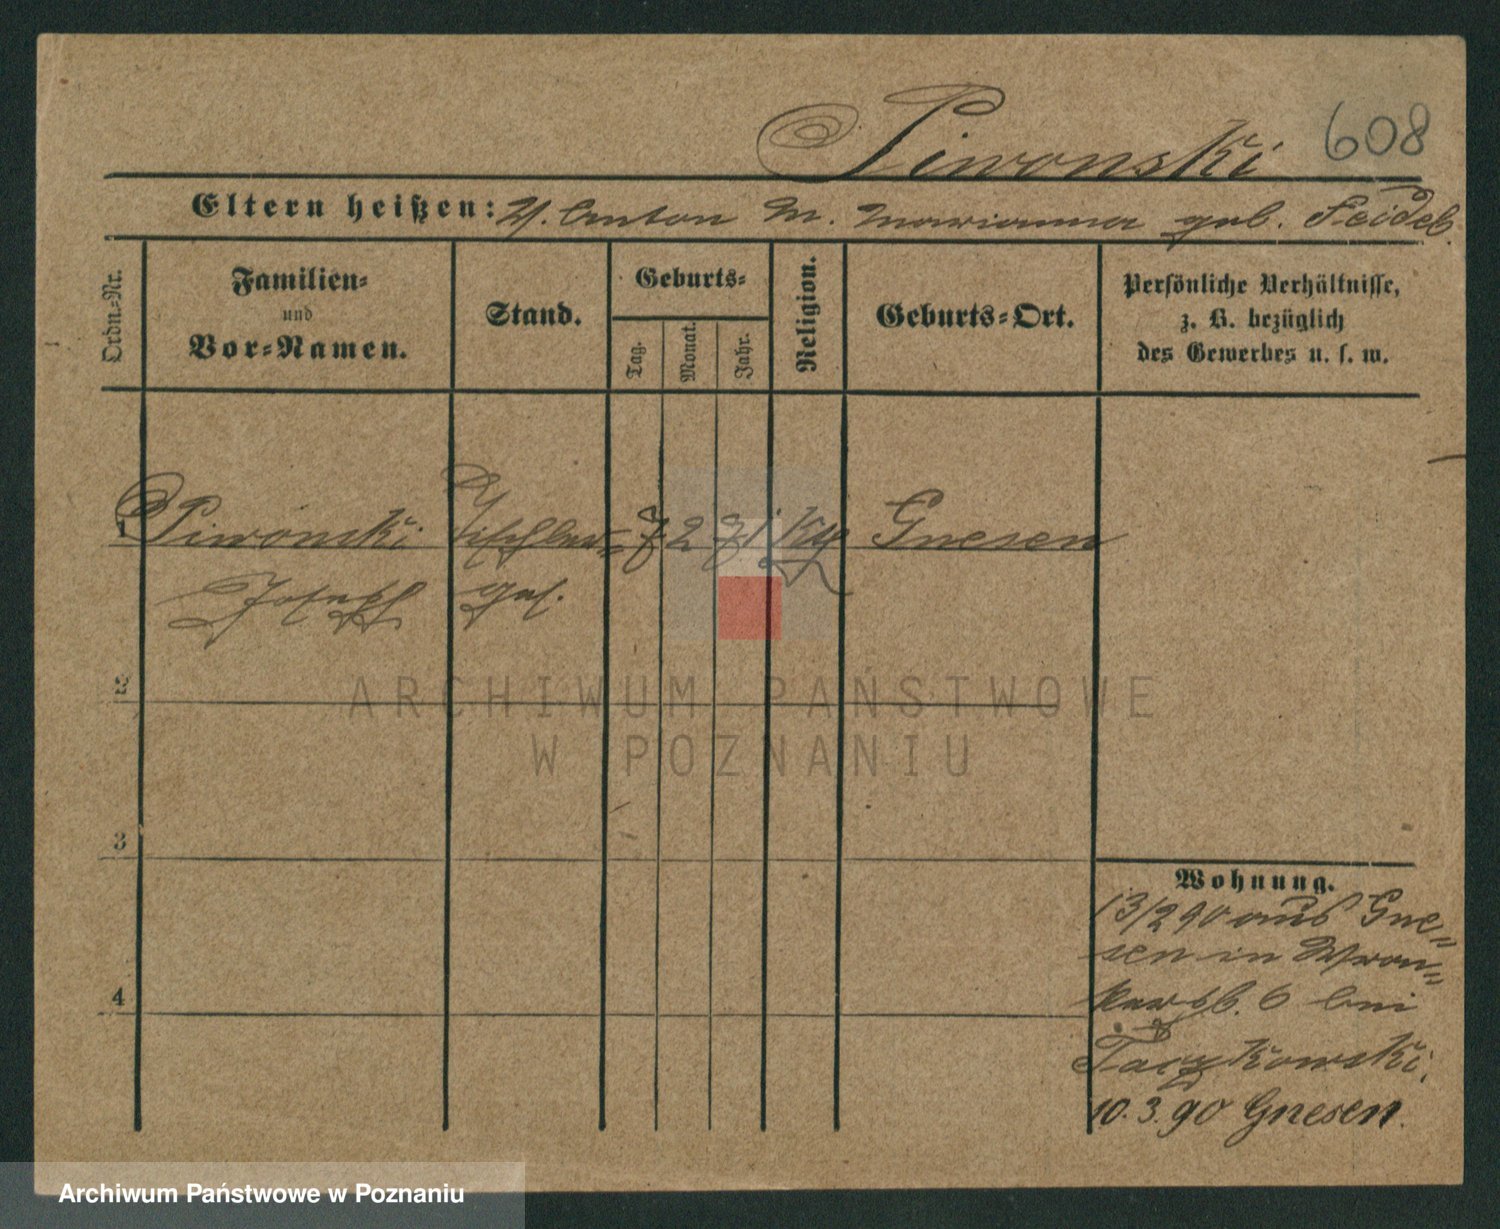 Piwonski 608
Eltern heißen: V. Anton M. Marianna geb. Feideb.
Ordn.-Nr.
Familien-
und
Vor-Namen.
Stand.
Geburts-
Tag.
Monat.
Jahr.
Religion.
Geburts-Ort.
Persönliche Verhältnisse,
z. B. bezüglich
des Gewerbes u. s. w.
1 Piwonski Tischler= 7 2 71 Kth Gnesen
Joseph ges.
2
3
4
Wohnung.
13/2 90 aus Gne=
sen in Wron=
kerstr. 6 bei
Taczkowski.
10.3.90 Gnesen.
ARCHIWUM PAŃSTWOWE
W POZNANIU
Archiwum Państwowe w Poznaniu